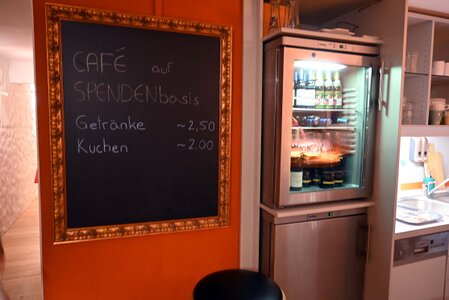 CAFÉ auf
SPENDENbasis
Getränke ~2,50
Kuchen ~2.00